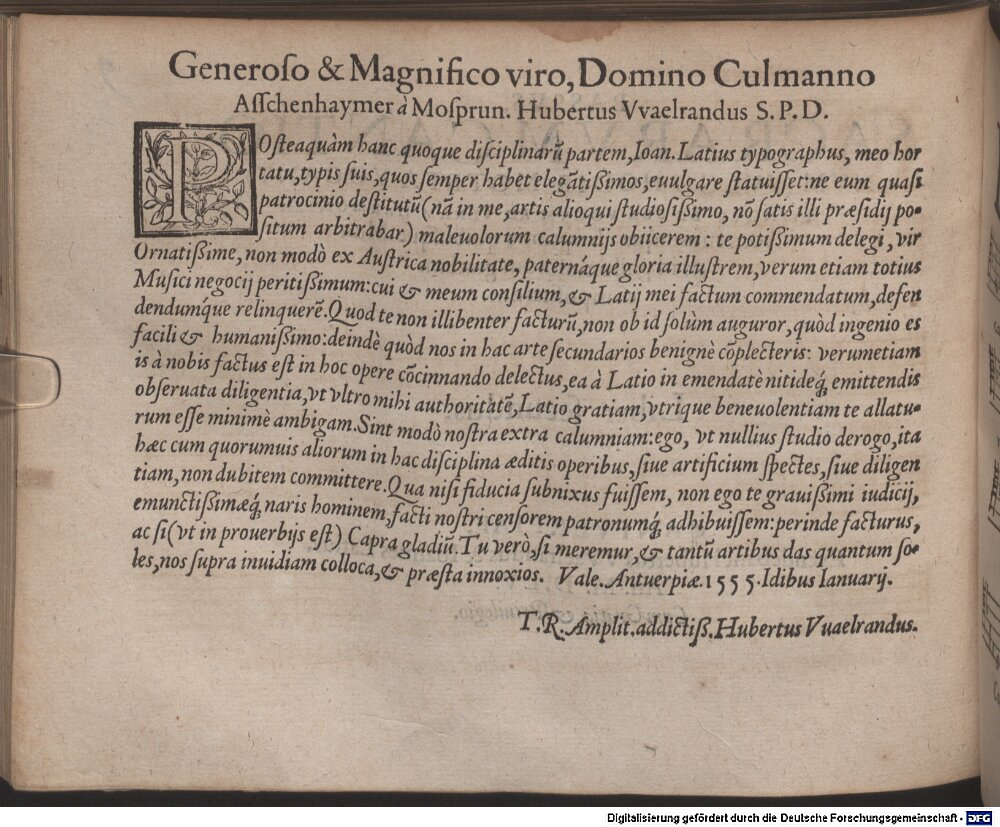 Generoſo & Magnifico viro, Domino Culmanno
Aſſchenhaymer à Moſprun. Hubertus Vvaelrandus S. P. D.
POſteaquàm hanc quoque diſciplinarũ partem, Ioan. Latius typographus, meo hor
tatu, typis ſuis, quos ſemper habet elegãtißimos, euulgare ſtatuiſſet: ne eum quaſi
patrocinio deſtitutũ (nã in me, artis alioqui ſtudioſißimo, nõ ſatis illi præſidij po-
ſitum arbitrabar) maleuolorum calumnijs obiicerem: te potißimum delegi, vir
Ornatißime, non modò ex Auſtrica nobilitate, paternáque gloria illuſtrem, verum etiam totius
Muſici negocij peritißimum: cui & meum conſilium, & Latij mei factum commendatum, defen
dendumq́ue relinquerẽ. Quod te non illibenter facturũ, non ob id ſolùm auguror, quòd ingenio es
facili & humanißimo: deindè quòd nos in hac arte ſecundarios benignè cõplecteris: verumetiam
is à nobis factus eſt in hoc opere cõcinnando delectus, ea à Latio in emendatè nitideq́; emittendis
obſeruata diligentia, vt vltro mihi authoritatẽ, Latio gratiam, vtrique beneuolentiam te allatu-
rum eſſe minimè ambigam. Sint modò noſtra extra calumniam: ego, vt nullius ſtudio derogo, ita
hæc cum quorumuis aliorum in hac diſciplina æditis operibus, ſiue artificium ſpectes, ſiue diligen
tiam, non dubitem committere. Qua niſi fiducia ſubnixus fuiſſem, non ego te grauißimi iudicij,
emunctißimæq́; naris hominem, facti noſtri cenſorem patronumq́; adhibuiſſem: perinde facturus,
ac ſi (vt in prouerbijs eſt) Capra gladiũ. Tu verò, ſi meremur, & tantũ artibus das quantum ſo-
les, nos ſupra inuidiam colloca, & præſta innoxios. Vale. Antuerpiæ. 1555. Idibus Ianuarij.
T. R. Amplit. addictiß. Hubertus Vuaelrandus.
Digitalisierung gefördert durch die Deutsche Forschungsgemeinschaft - DFG